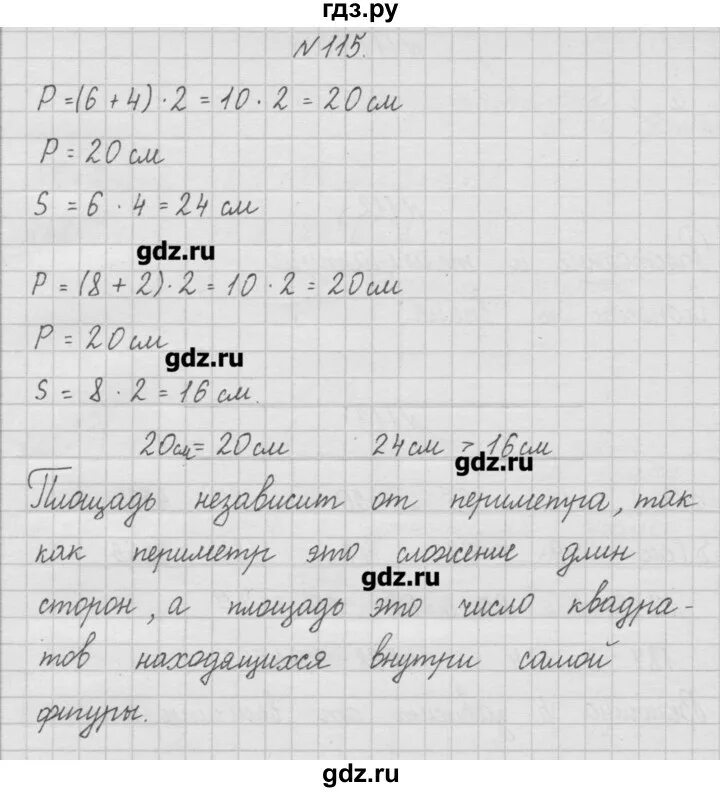 гдз.ру
№115.
P = (6 + 4) · 2 = 10 · 2 = 20 см
P = 20 см
S = 6 · 4 = 24 см
gdz.ru
P = (8 + 2) · 2 = 10 · 2 = 20 см
P = 20 см
gdz.ru
S = 8 · 2 = 16 см.
20 см = 20 см 24 см > 16 см
gdz.ru
Площадь независит от периметра, так
как периметр это сложение длин
gdz.ru
сторон, а площадь это число квадра-
тов находящихся внутри самой
фигуры.
gdz.ru